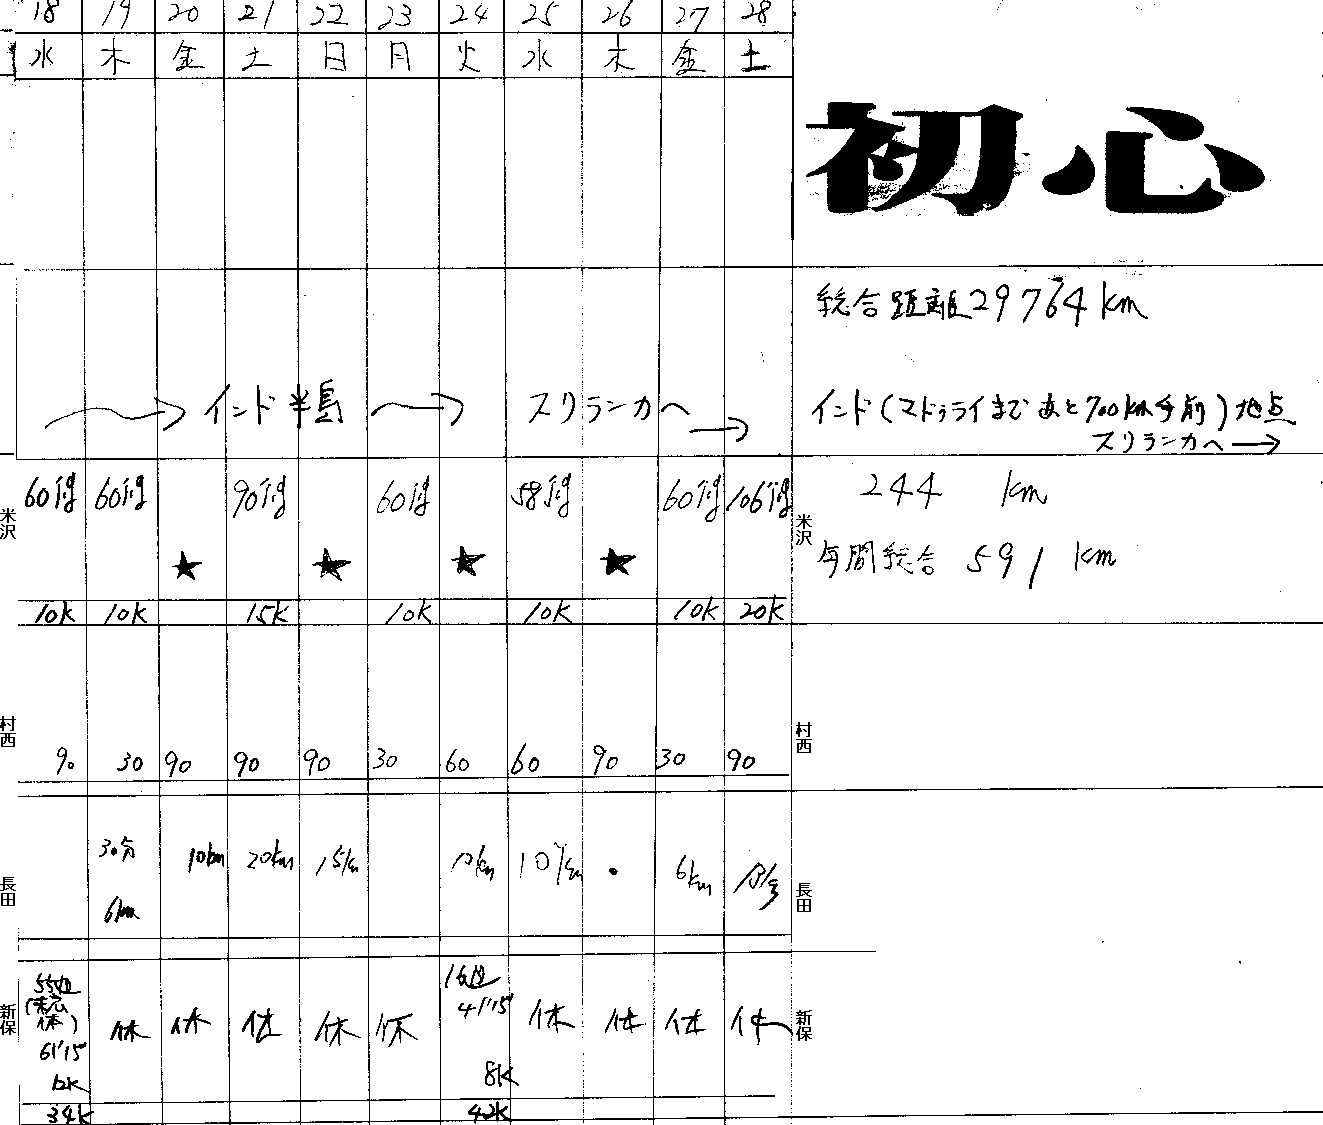 18 19 20 21 22 23 24 25 26 27 28
水 木 金 土 日 月 火 水 木 金 土
初心
総合距離 29764km
→ インド半島 → スリランカへ →
インド(マドゥライまであと700km手前)地点
スリランカへ→
米沢
60jog 60jog 90jog 60jog 58jog 60jog 106jog
★ ★ ★ ★
10K 10K 15K 10K 10K 10K 20K
米沢
244 km
年間総合 591 km
村西
90 30 90 90 90 30 60 60 90 30 90
村西
長田
30分 10km 20km 15km 12km 10km • 6km
6km
長田
新保
55位 16位
休) 41'15" 休 休 休 休 休 休 休 休 休
61'15"
12K 8K
34K 42K
新保